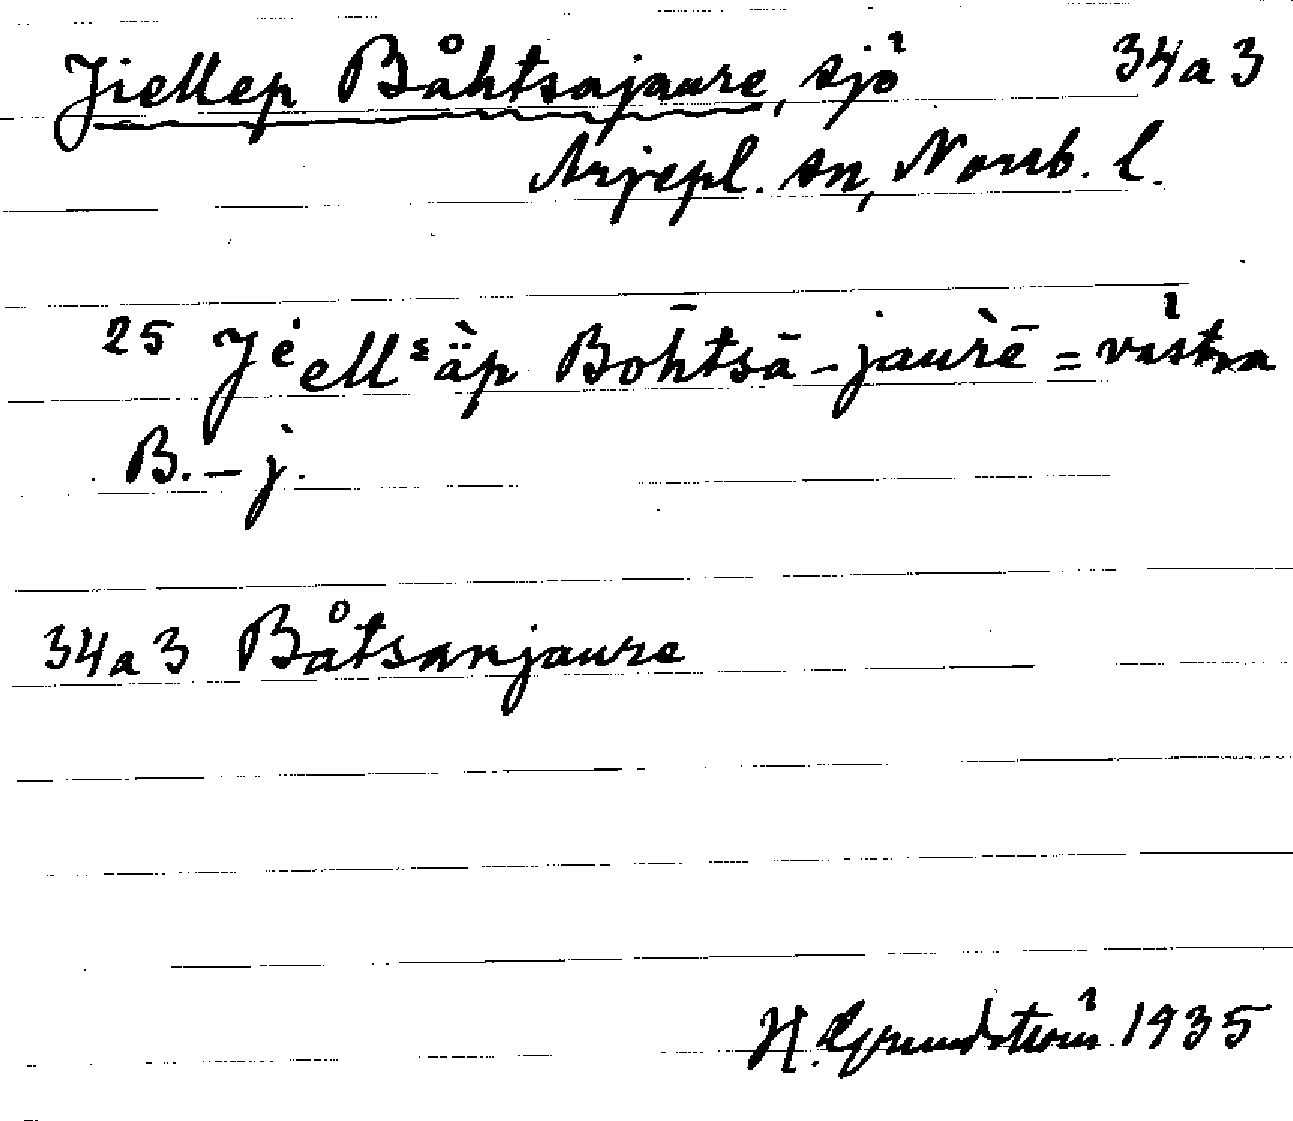 Jiellep Båhtsajaure, sjö 34a3
Arjepl. sn, Norrb. l.
25 Jėellˤä̀p Bōhtsā-jaurè̄ = västra
B.-j.
34a3 Båtsanjaure
H. Grundström 1935